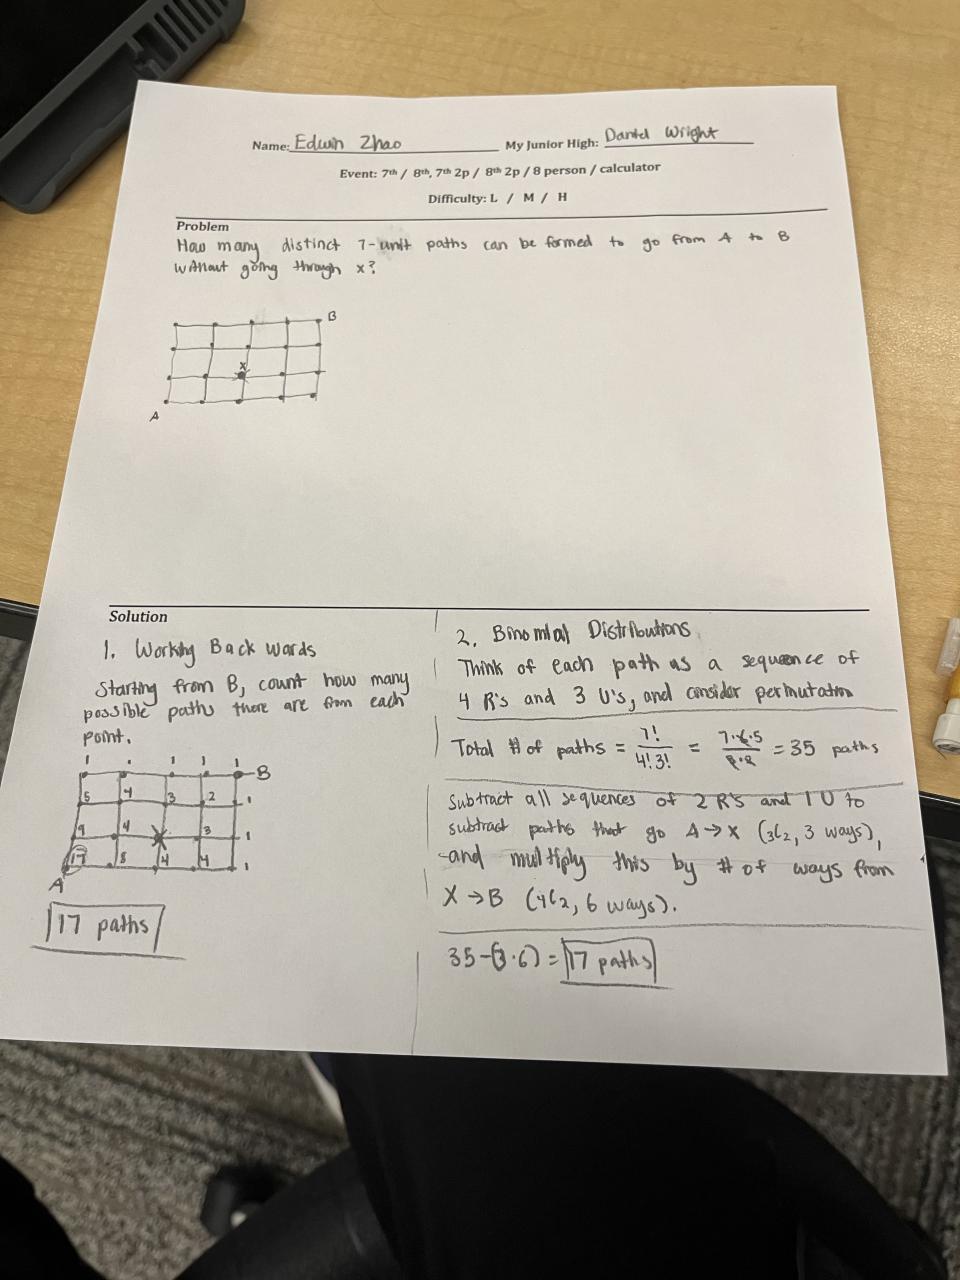 Name: Edwin Zhao My Junior High: Daniel Wright
Event: 7th / 8th, 7th 2p / 8th 2p / 8 person / calculator
Difficulty: L / M / H
Problem
How many distinct 7-unit paths can be formed to go from A to B
without going through x?
B
x
A
Solution
1. Working Back wards
Starting from B, count how many
possible paths there are from each
point.
1 1 1 1 B
5 4 3 2 1
9 4 3 1
17 8 4 4 1
A
17 paths
2. Binomial Distributions
Think of each path as a sequence of
4 R's and 3 U's, and consider permutation
Total # of paths = 7!/4!3! = 7·6·5/ = 35 paths
Subtract all sequences of 2 R's and 1 U to
subtract paths that go A→X (3C2, 3 ways),
and multiply this by # of ways from
X→B (4C2, 6 ways).
35-(3·6) = 17 paths